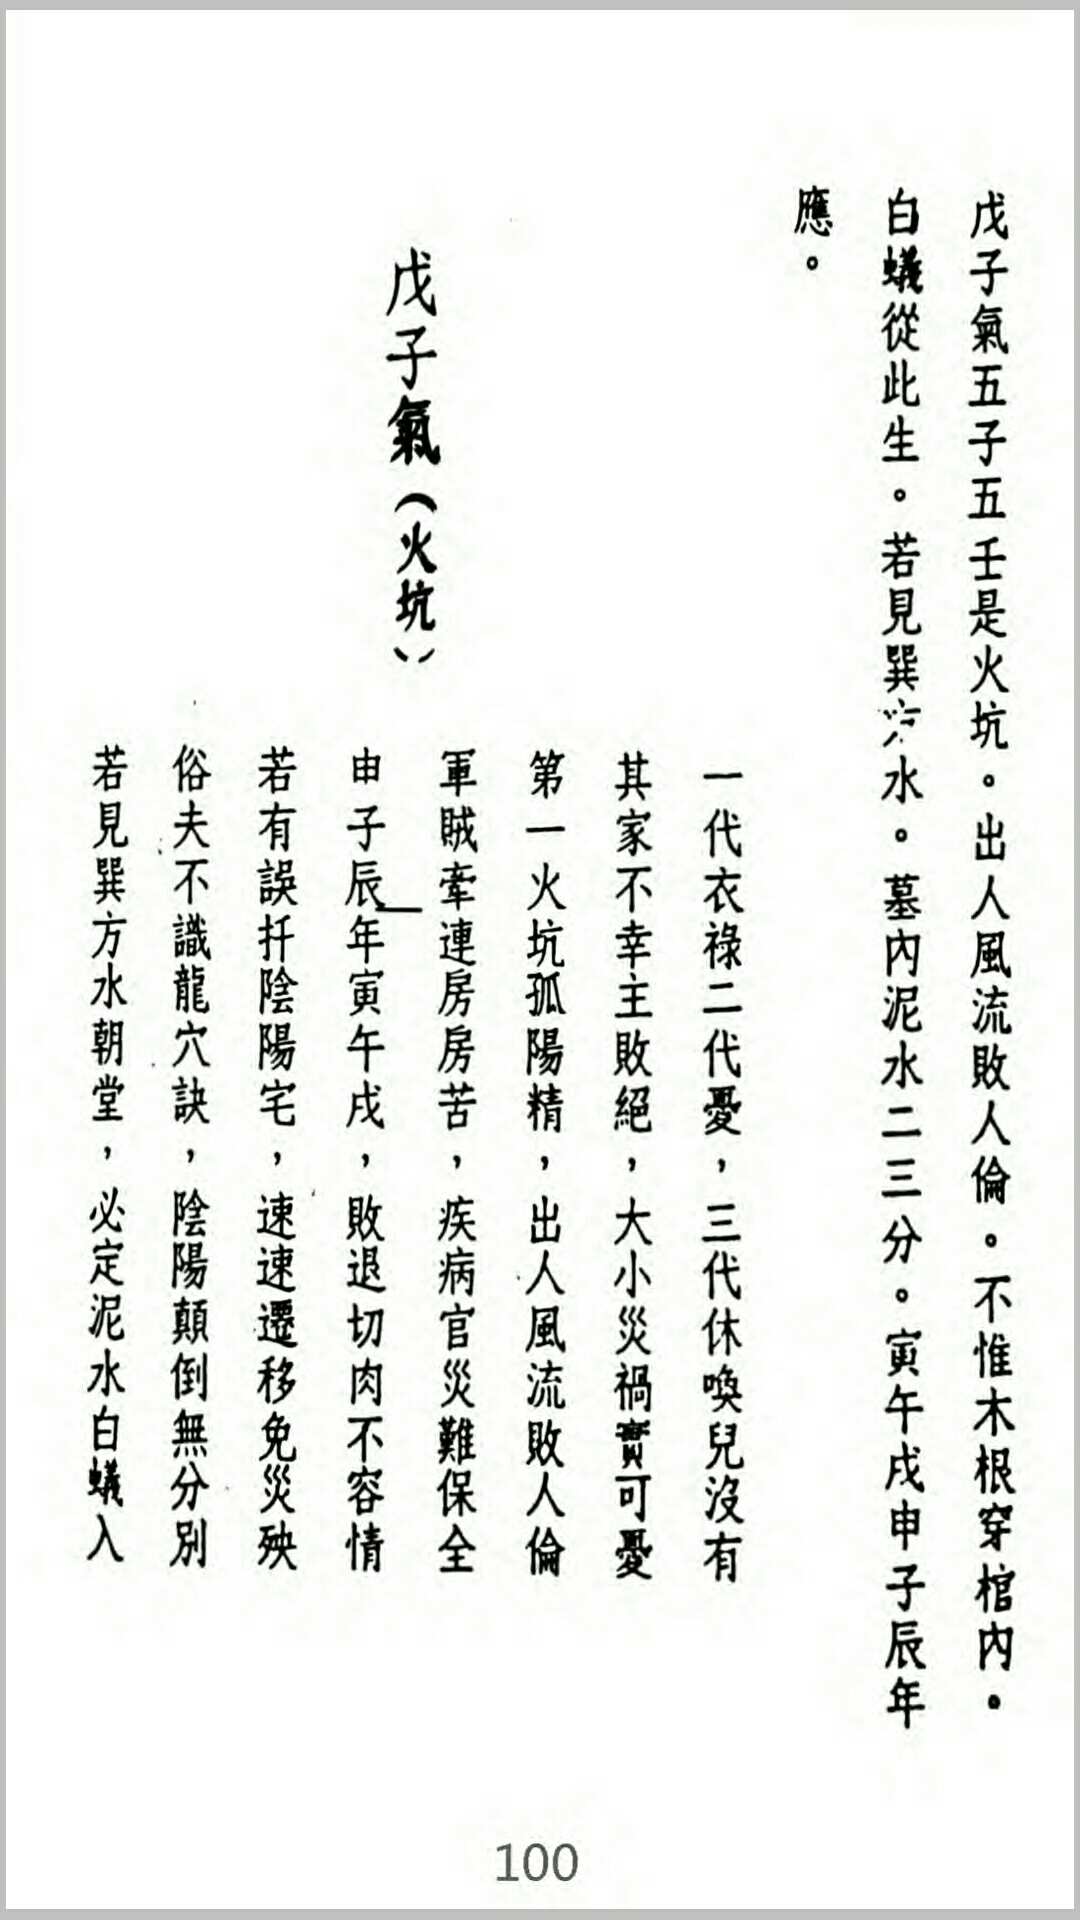 戊子氣五子五壬是火坑。出人風流敗人倫。不惟木根穿棺內。
白蟻從此生。若見巽方水。墓內泥水二三分。寅午戌申子辰年
應。
一代衣祿二代憂，三代休喚兒沒有
其家不幸主敗絕，大小災禍實可憂
第一火坑孤陽精，出人風流敗人倫
戊子氣（火坑）
軍賊牽連房房苦，疾病官災難保全
申子辰年寅午戌，敗退切肉不容情
若有誤扦陰陽宅，速速遷移免災殃
俗夫不識龍穴訣，陰陽顛倒無分別
若見巽方水朝堂，必定泥水白蟻入
100